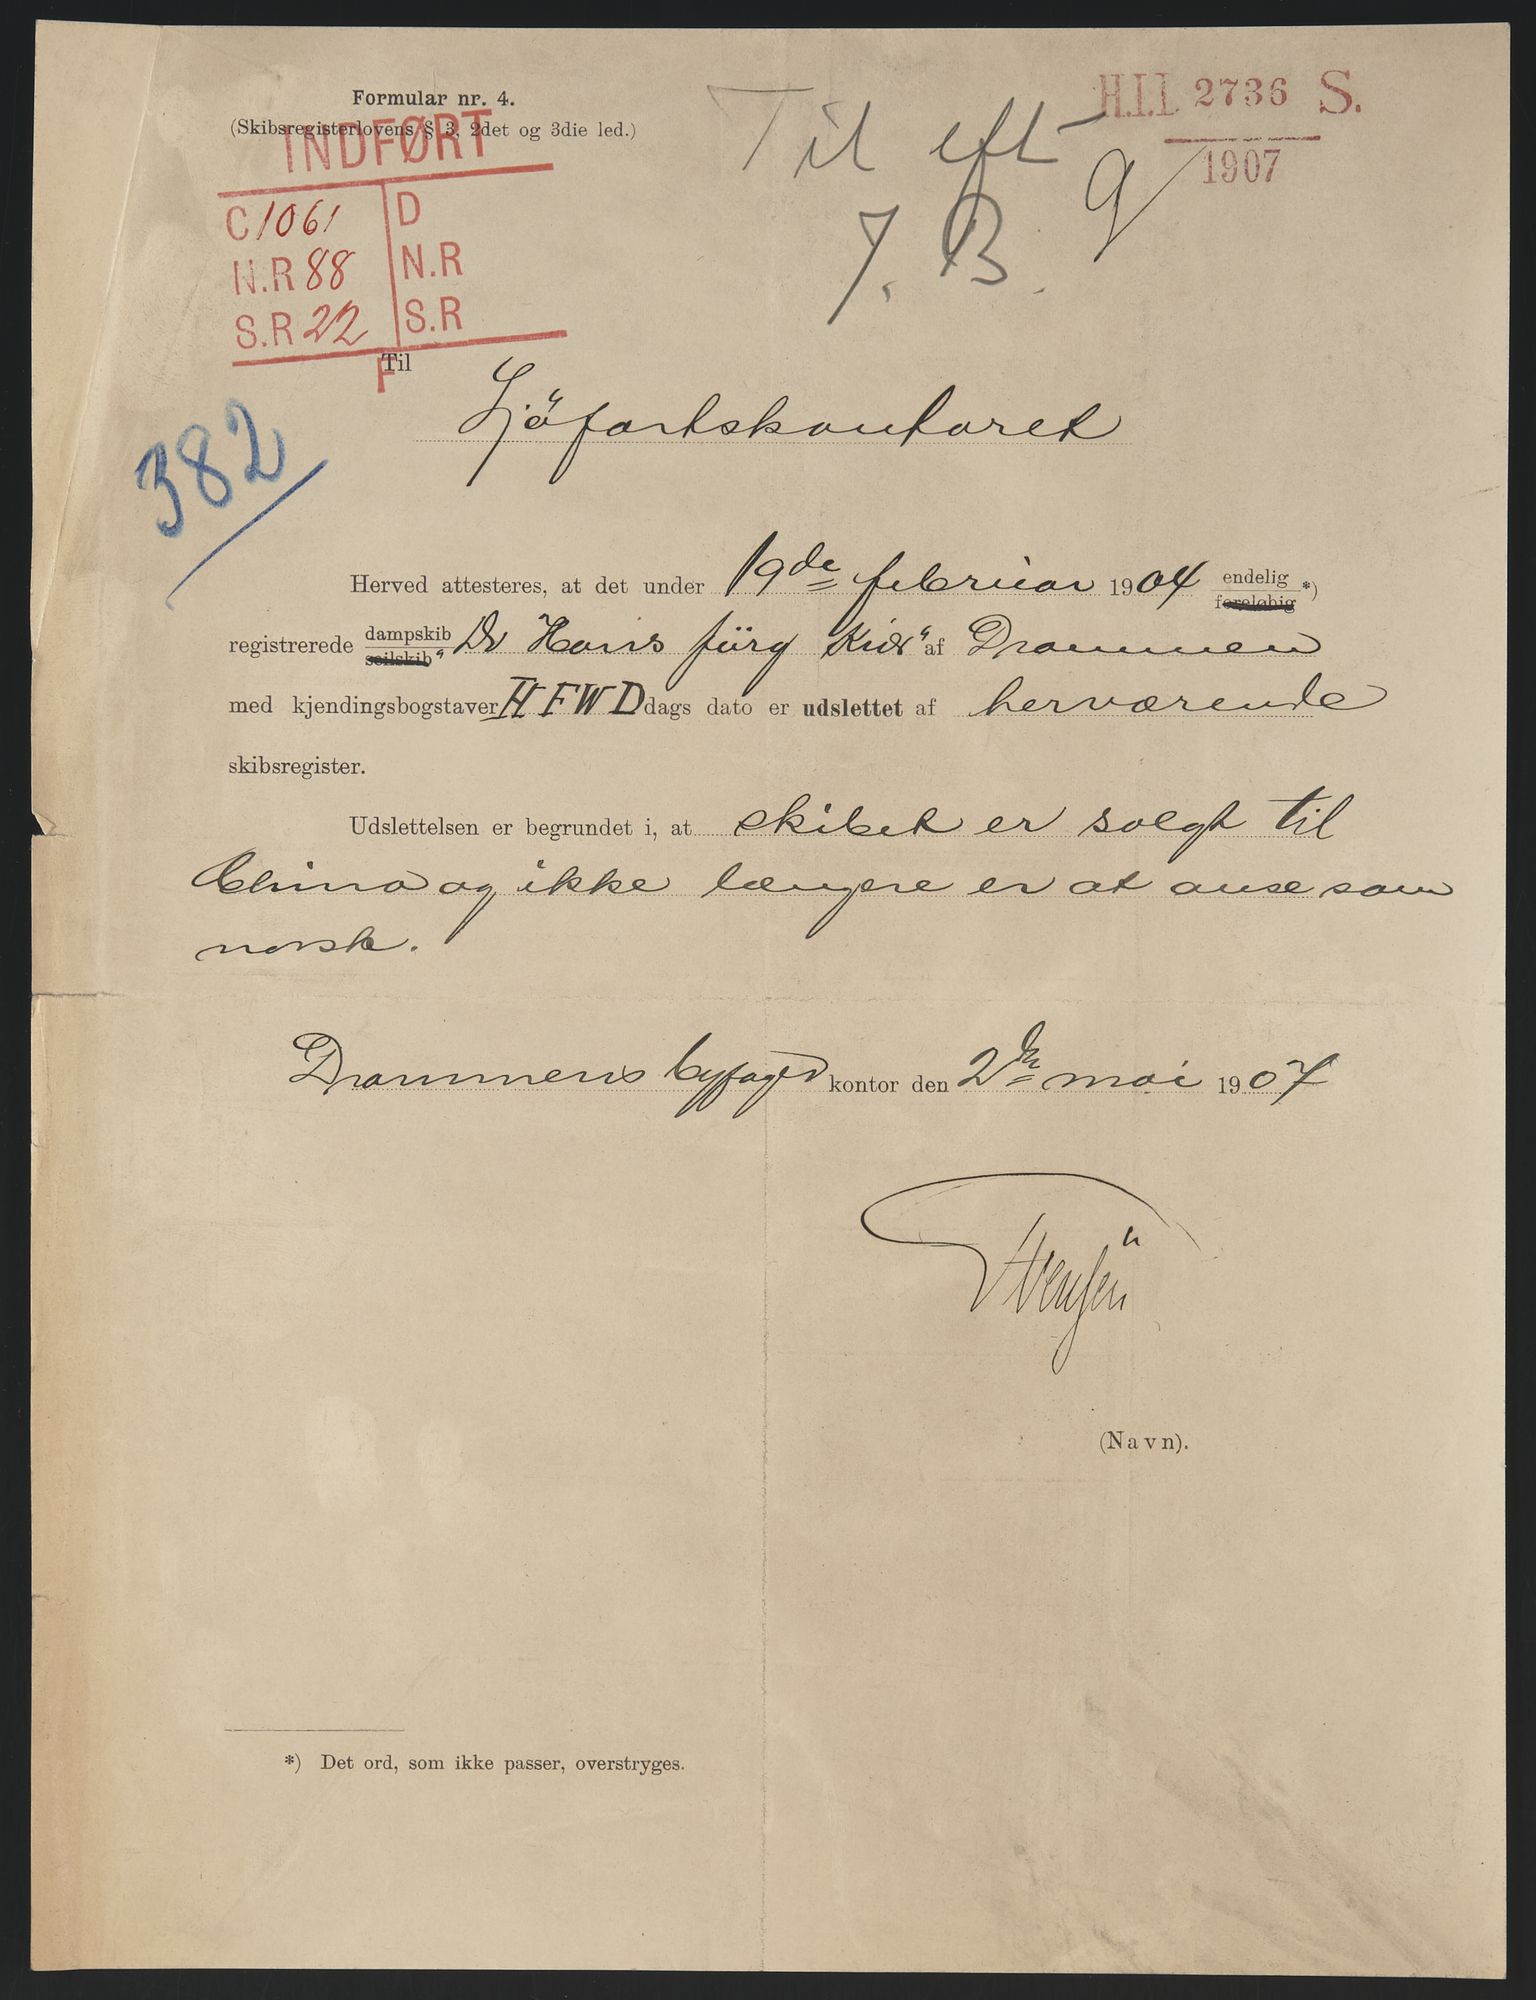 Formular nr. 4.
(Skibsregisterlovens § 3, 2det og 3die led.)
H.I.I. 2736 S.
1907
Til eft
J. B.
INDFØRT
C 1061 D
N.R 88 N.R
S.R 22 S.R
F
Til
Sjöfartskontoret
382
Herved attesteres, at det under 19de februar 1904 endelig foreløbig *)
registrerede dampskib seilskib "Dr Hans Jürg Kiær" af Drammen
med kjendingsbogstaver HFWD dags dato er udslettet af herværende
skibsregister.
Udslettelsen er begrundet i, at skibet er solgt til
China og ikke længere er at anse som
norsk.
Drammens byfoged kontor den 2de mai 1907
(Navn).
*) Det ord, som ikke passer, overstryges.